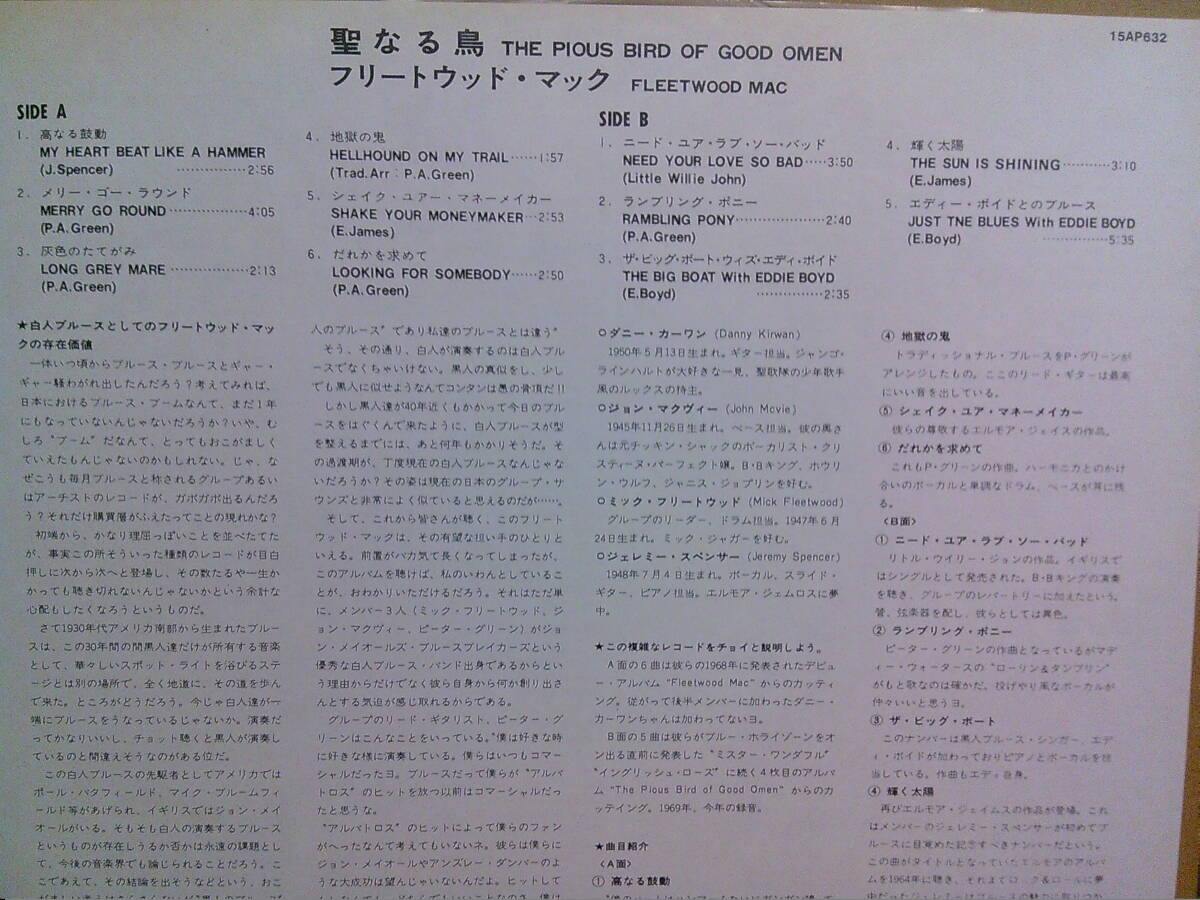 15AP632
聖なる鳥 THE PIOUS BIRD OF GOOD OMEN
フリートウッド・マック FLEETWOOD MAC
SIDE A
1. 高なる鼓動
MY HEART BEAT LIKE A HAMMER
(J.Spencer) ……………2:56
2. メリー・ゴー・ラウンド
MERRY GO ROUND……………4:05
(P.A.Green)
3. 灰色のたてがみ
LONG GREY MARE ……………2:13
(P.A.Green)
4. 地獄の鬼
HELLHOUND ON MY TRAIL……1:57
(Trad.Arr : P.A.Green)
5. シェイク・ユアー・マネーメイカー
SHAKE YOUR MONEYMAKER…2:53
(E.James)
6. だれかを求めて
LOOKING FOR SOMEBODY……2:50
(P.A.Green)
SIDE B
1. ニード・ユア・ラブ・ソー・バッド
NEED YOUR LOVE SO BAD……3:50
(Little Willie John)
2. ランブリング・ポニー
RAMBLING PONY…………………2:40
(P.A.Green)
3. ザ・ビッグ・ボート・ウィズ・エディ・ボイド
THE BIG BOAT With EDDIE BOYD
(E.Boyd) ……………2:35
4. 輝く太陽
THE SUN IS SHINING…………3:10
(E.James)
5. エディー・ボイドとのブルース
JUST TNE BLUES With EDDIE BOYD
(E.Boyd) ……………5:35
★白人ブルースとしてのフリートウッド・マッ
クの存在価値
一体いつ頃からブルース・ブルースとギャー・
ギャー騒わがれ出したんだろう？考えてみれば、
日本におけるブルース・ブームなんて、まだ1年
にもなっていないんじゃないだろうか？いや、む
しろ“ブーム”だなんて、とってもおこがましく
ていえたもんじゃないのかもしれない。じゃ、な
ぜこうも毎月ブルースと称されるグループあるい
はアーチストのレコードが、ガボガボ出るんだろ
う？それだけ購買層がふえたってことの現れかな？
初端から、かなり理屈っぽいことを並べたてた
が、事実この所そういった種類のレコードが目白
押しに次から次へと登場し、その数たるや一生か
かっても聴き切れないんじゃないかという余計な
心配もしたくなろうというものだ。
さて1930年代アメリカ南部から生まれたブルー
スは、この30年間の間黒人達だけが所有する音楽
として、華々しいスポット・ライトを浴びるステ
ージとは別の場所で、全く地道に、その道を歩ん
で来た。ところがどうだろう。今じゃ白人達が一
端にブルースをうなっているじゃないか。演奏だ
ってかなりいいし、チョット聴くと黒人が演奏し
ているのと間違えそうなのがある位だ。
この白人ブルースの先駆者としてアメリカでは
ポール・バタフィールド、マイク・ブルームフィ
ールド等があげられ、イギリスではジョン・メイ
オールがいる。そもそも白人の演奏するブルース
というものが存在しうるか否かは永遠の課題とし
て、今後の音楽界でも論じられることだろう。こ
こであえて、その結論を出そうなどという、おこ
人のブルース”であり私達のブルースとは違う”
そう、その通り、白人が演奏するのは白人ブル
ースでなくちゃいけない。黒人の真似をし、少し
でも黒人に似せようなんてコンタンは愚の骨頂だ!!
しかし黒人達が40年近くもかかって今日のブル
ースをはぐくんで来たように、白人ブルースが型
を整えるまでには、あと何年もかかりそうだ。そ
の過渡期が、丁度現在の白人ブルースなんじゃな
いだろうか？その姿は現在の日本のグループ・サ
ウンズと非常によく似ていると思えるのだが……。
そして、これから皆さんが聴く、このフリート
ウッド・マックは、その有望な担い手のひとりと
いえる。前置がバカ気て長くなってしまったが、
このアルバムを聴けば、私のいわんとしているこ
とが、おわかりいただけるだろう。それはただ単
に、メンバー3人（ミック・フリートウッド、ジ
ョン・マクヴィー、ピーター・グリーン）がジョ
ン・メイオールズ・ブルースブレイカーズという
優秀な白人ブルース・バンド出身であるからとい
う理由からだけでなく彼ら自身から何か創り出さ
んとする気迫が感じ取れるからである。
グループのリード・ギタリスト、ピーター・グ
リーンはこんなことをいっている。“僕は好きな時
に好きな様に演奏している。僕らはいつもコマー
シャルだったヨ。ブルースだって僕らが“アルバ
トロス”のヒットを放つ以前はコマーシャルだっ
たと思うな。
“アルバトロス”のヒットによって僕らのファン
がへったなんて考えてもいないネ。彼らは僕らに
ジョン・メイオールやアンズレー・ダンバーのよ
うな大成功は望んじゃいないんだよ。ヒットして
○ダニー・カーワン (Danny Kirwan)
1950年5月13日生まれ。ギター担当。ジャンゴ・
ラインハルトが大好きな一見、聖歌隊の少年歌手
風のルックスの持主。
○ジョン・マクヴィー (John Mcvie)
1945年11月26日生まれ。ベース担当。彼の奥さ
んは元チッキン・シャックのボーカリスト・クリ
スティーヌ・パーフェクト嬢。B・Bキング、ホウリ
ン・ウルフ、ジャニス・ジョプリンを好む。
○ミック・フリートウッド (Mick Fleetwood)
グループのリーダー、ドラム担当。1947年6月
24日生まれ。ミック・ジャガーを好む。
○ジェレミー・スペンサー (Jeremy Spencer)
1948年7月4日生まれ。ボーカル、スライド・
ギター、ピアノ担当。エルモア・ジェムロスに夢
中。
★この複雑なレコードをチョイと説明しよう。
A面の6曲は彼らの1968年に発表されたデビュ
ー・アルバム“Fleetwood Mac”からのカッティ
ング。従がって後半メンバーに加わったダニー・
カーワンちゃんは加わってないヨ。
B面の5曲は彼らがブルー・ホライゾーンをオ
ン出る直前に発表した“ミスター・ワンダフル”
“イングリッシュ・ローズ”に続く4枚目のアルバ
ム“The Pious Bird of Good Omen”からのカ
ッテイング。1969年、今年の録音。
★曲目紹介
<A面>
① 高なる鼓動
④ 地獄の鬼
トラディッショナル・ブルースをP・グリーンが
アレンジしたもの。ここのリード・ギターは最高
にいい音を出している。
⑤ シェイク・ユア・マネーメイカー
彼らの尊敬するエルモア・ジェイスの作品。
⑥ だれかを求めて
これもP・グリーンの作曲。ハーモニカとのかけ
合いのボーカルと単調なドラム、ベースが耳に残
る。
<B面>
① ニード・ユア・ラブ・ソー・バッド
リトル・ウイリー・ジョンの作品。イギリスで
はシングルとして発売された。B・Bキングの演奏
を聴き、グループのレパートリーに加えたという。
管、弦楽器を配し、彼らとしては異色。
② ランブリング・ポニー
ピーター・グリーンの作曲となっているがマデ
ィー・ウォータースの“ローリン＆タンブリン”
がもと歌なのは確かだ。投げやり風なボーカルが
仲々いいと思うヨ。
③ ザ・ビッグ・ボート
このナンバーは黒人ブルース・シンガー、エデ
ィ・ボイドが加わっておりピアノとボーカルを担
当している。作曲もエディ自身。
④ 輝く太陽
再びエルモア・ジェイムスの作品が登場。これ
はメンバーのジェレミー・スペンサーが初めてブ
ルースに目覚めた記念すべきナンバーだという。
この曲がタイトルとなっていたエルモアのアルバ
ムを1964年に聴き、それまでロック＆ロールに夢